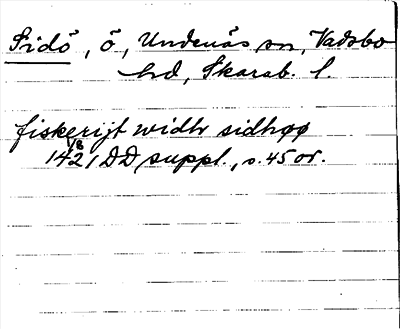 Sidö, ö, Undenäs sn, Vadsbo
hd, Skarab. l.
fiskerijt widh sidhøø
1/8 1421 DD suppl., s. 45 or.